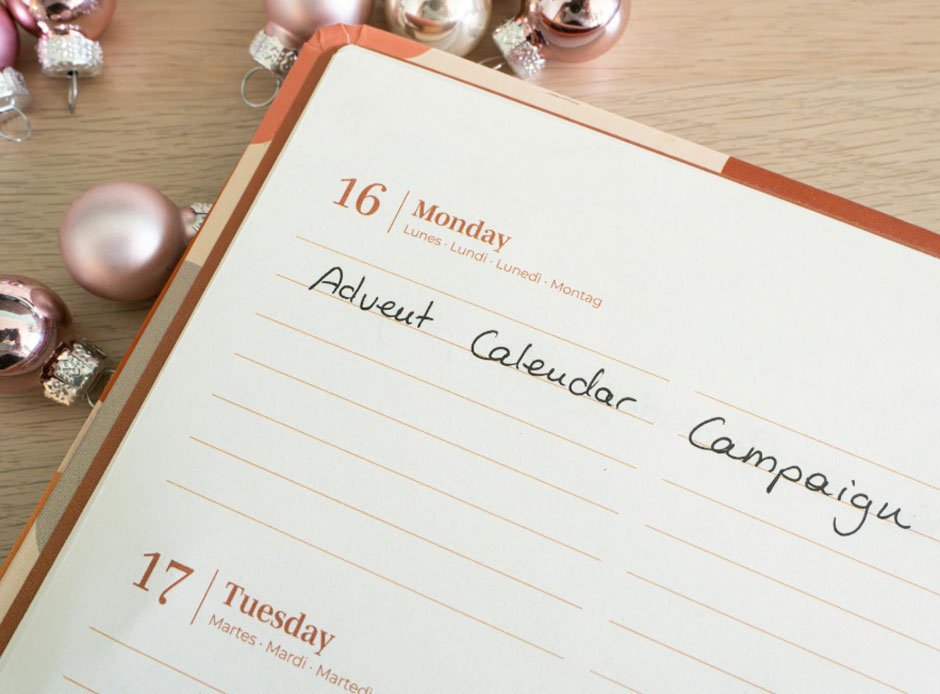 16 Monday
Lunes · Lundi · Lunedì · Montag
Advent Calendar Campaign
17 Tuesday
Martes · Mardi · Martedì